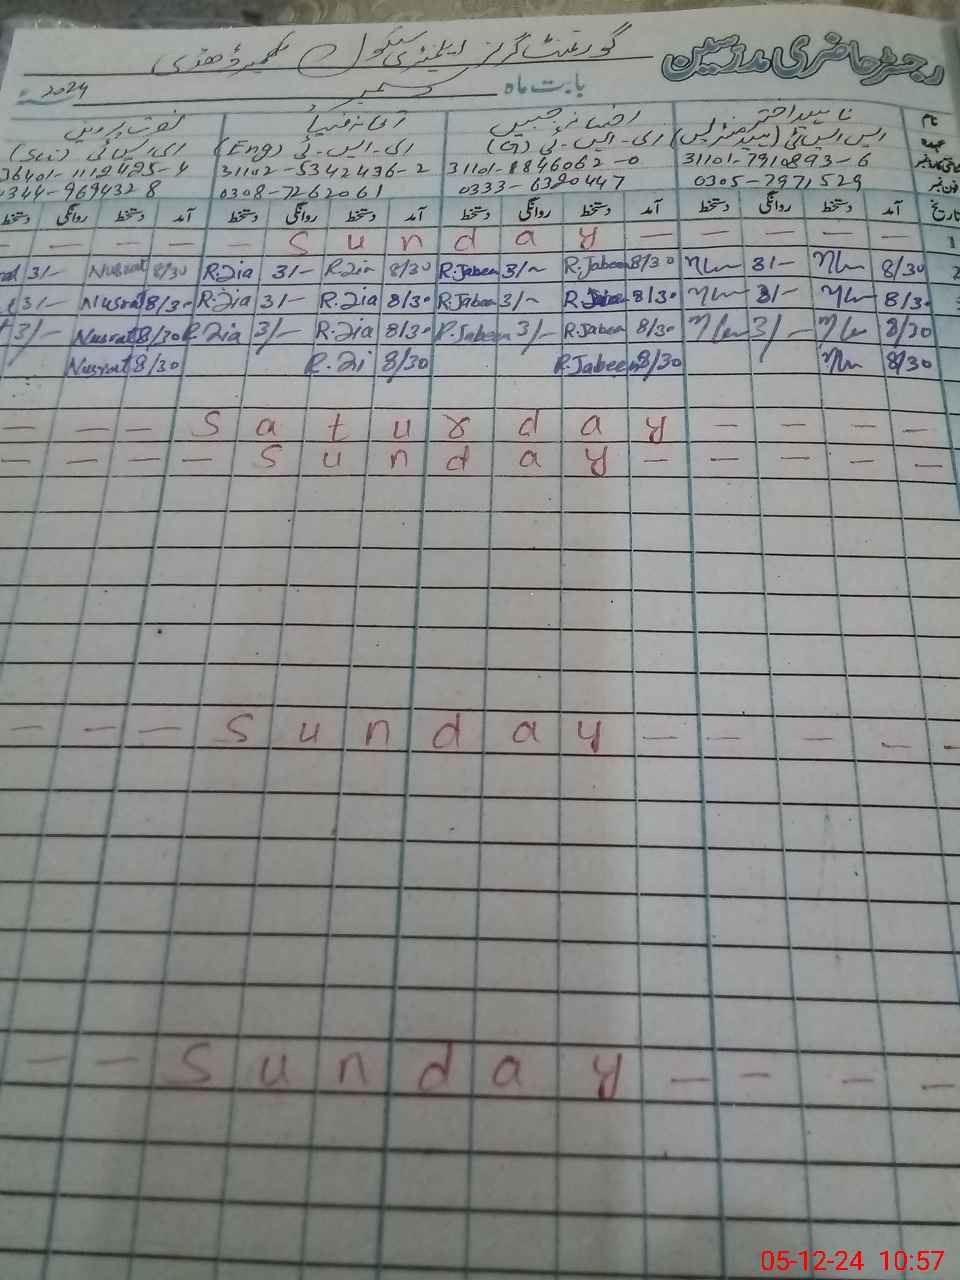 رجسٹر حاضری مدرسین گورنمنٹ گرلز ایلیمنٹری سکول
بابت ماہ دسمبر 2024
نام ناہید اختر رضیہ
عہدہ ایس ایس ٹی (ہیڈمسٹریس) ای۔ایس۔ٹی (G) ای۔ایس۔ٹی (Eng) ای ایس ٹی (Sci)
31101-7910893-6 31101-1846062-0 31102-5342436-2 36401-1112425-4
فون نمبر 0305-7971529 0333-6320447 0308-7262061 0344-9694328
تاریخ آمد دستخط روانگی دستخط آمد دستخط روانگی دستخط آمد دستخط روانگی دستخط آمد دستخط روانگی دستخط
1 — — — — S u n d a y — — — — —
2 8/30 3/- 8/30 R.Jabeen 3/- R.Jabeen 8/30 R.Zia 3/- R.Zia 8/30 Nusrat 3/-
3 8/30 3/- 8/30 R.Jabeen 3/- R.Jabeen 8/30 R.Zia 3/- R.Zia 8/30 Nusrat 3/-
8/30 3/- 8/30 R.Jabeen 3/- R.Jabeen 8/30 R.Zia 3/- R.Zia 8/30 Nusrat 3/-
8/30 8/30 R.Jabeen 8/30 R.Zi 8/30 Nusrat
— — — S a t u r d a y — — — —
— — — — S u n d a y — — — — —
— — — S u n d a y — — — — —
— — S u n d a y — — — —
05-12-24 10:57